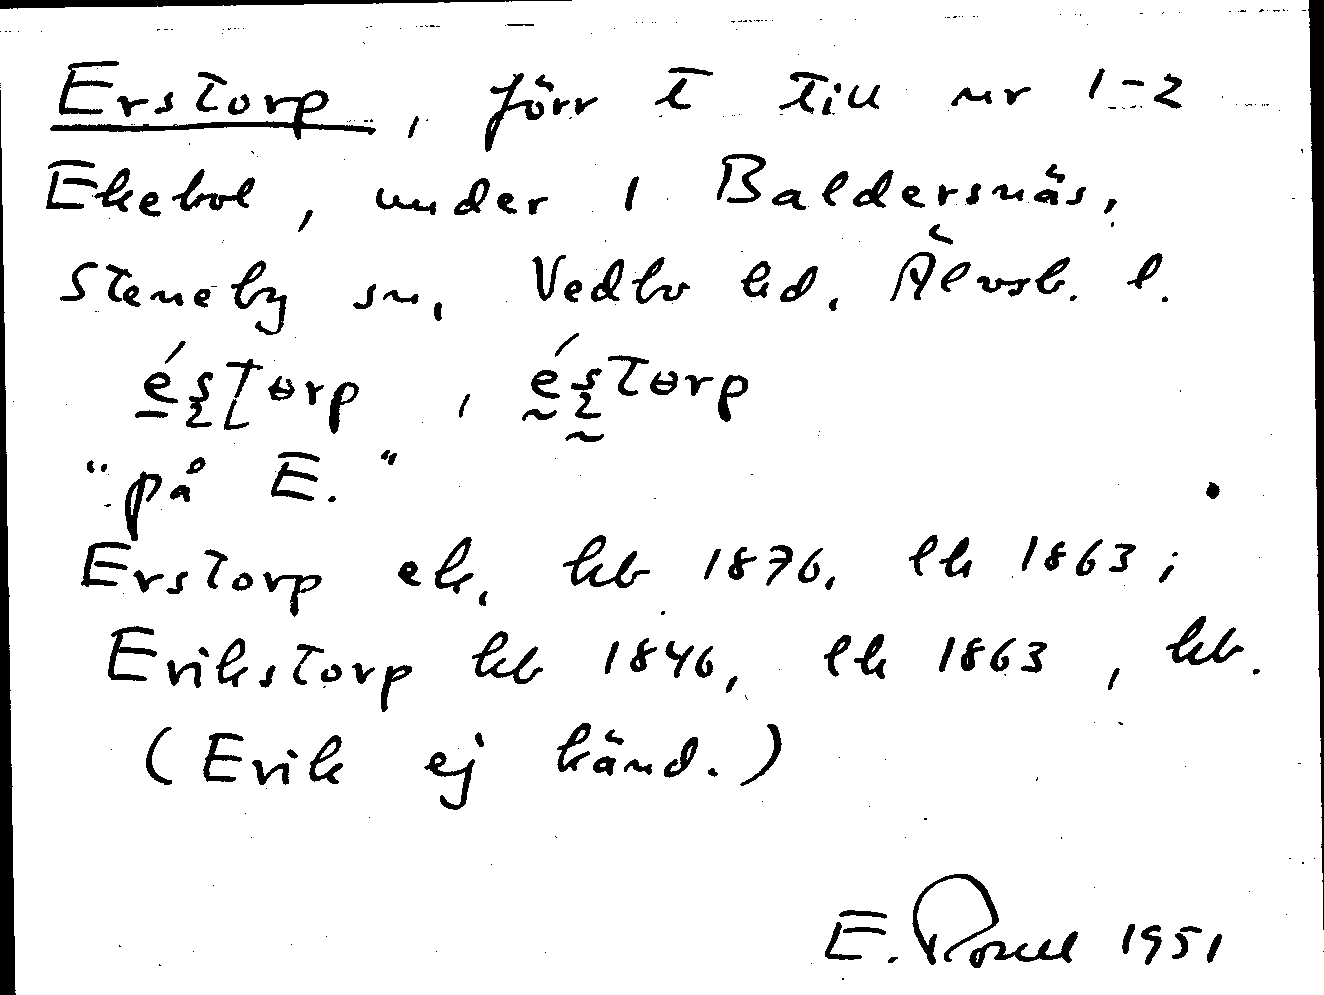 Erstorp, förr t till nr 1-2
Ekebol, under 1 Baldersnäs,
Steneby sn, Vedbo hd, Älvsb. l.
"på E."
Erstorp ek, kb 1876, lk 1863;
Erikstorp kb 1846, lk 1863, kb.
(Erik ej känd.)
E. 1951